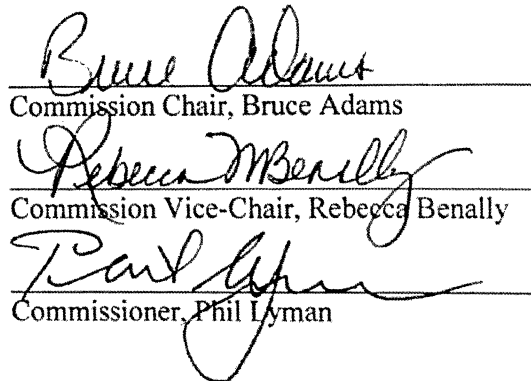 Bruce Adams
Commission Chair, Bruce Adams
Rebecca M Benally
Commission Vice-Chair, Rebecca Benally
Phil Lyman
Commissioner, Phil Lyman